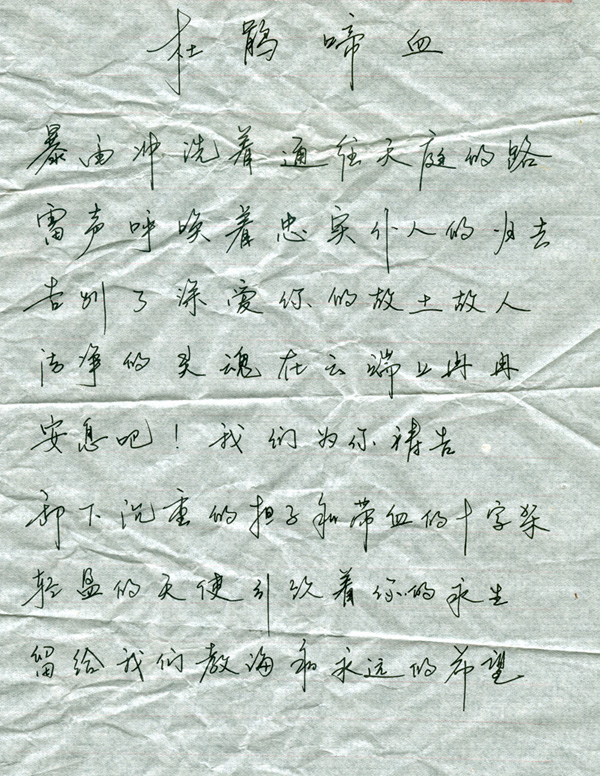 杜鹃啼血
暴雨冲洗着通往天庭的路
雷声呼唤着忠实仆人的归去
告别了深爱你的故土故人
洁净的灵魂在云端上冉冉
安息吧！我们为你祷告
卸下沉重的担子和带血的十字架
轻盈的天使引领着你的永生
留给我们教诲和永远的希望